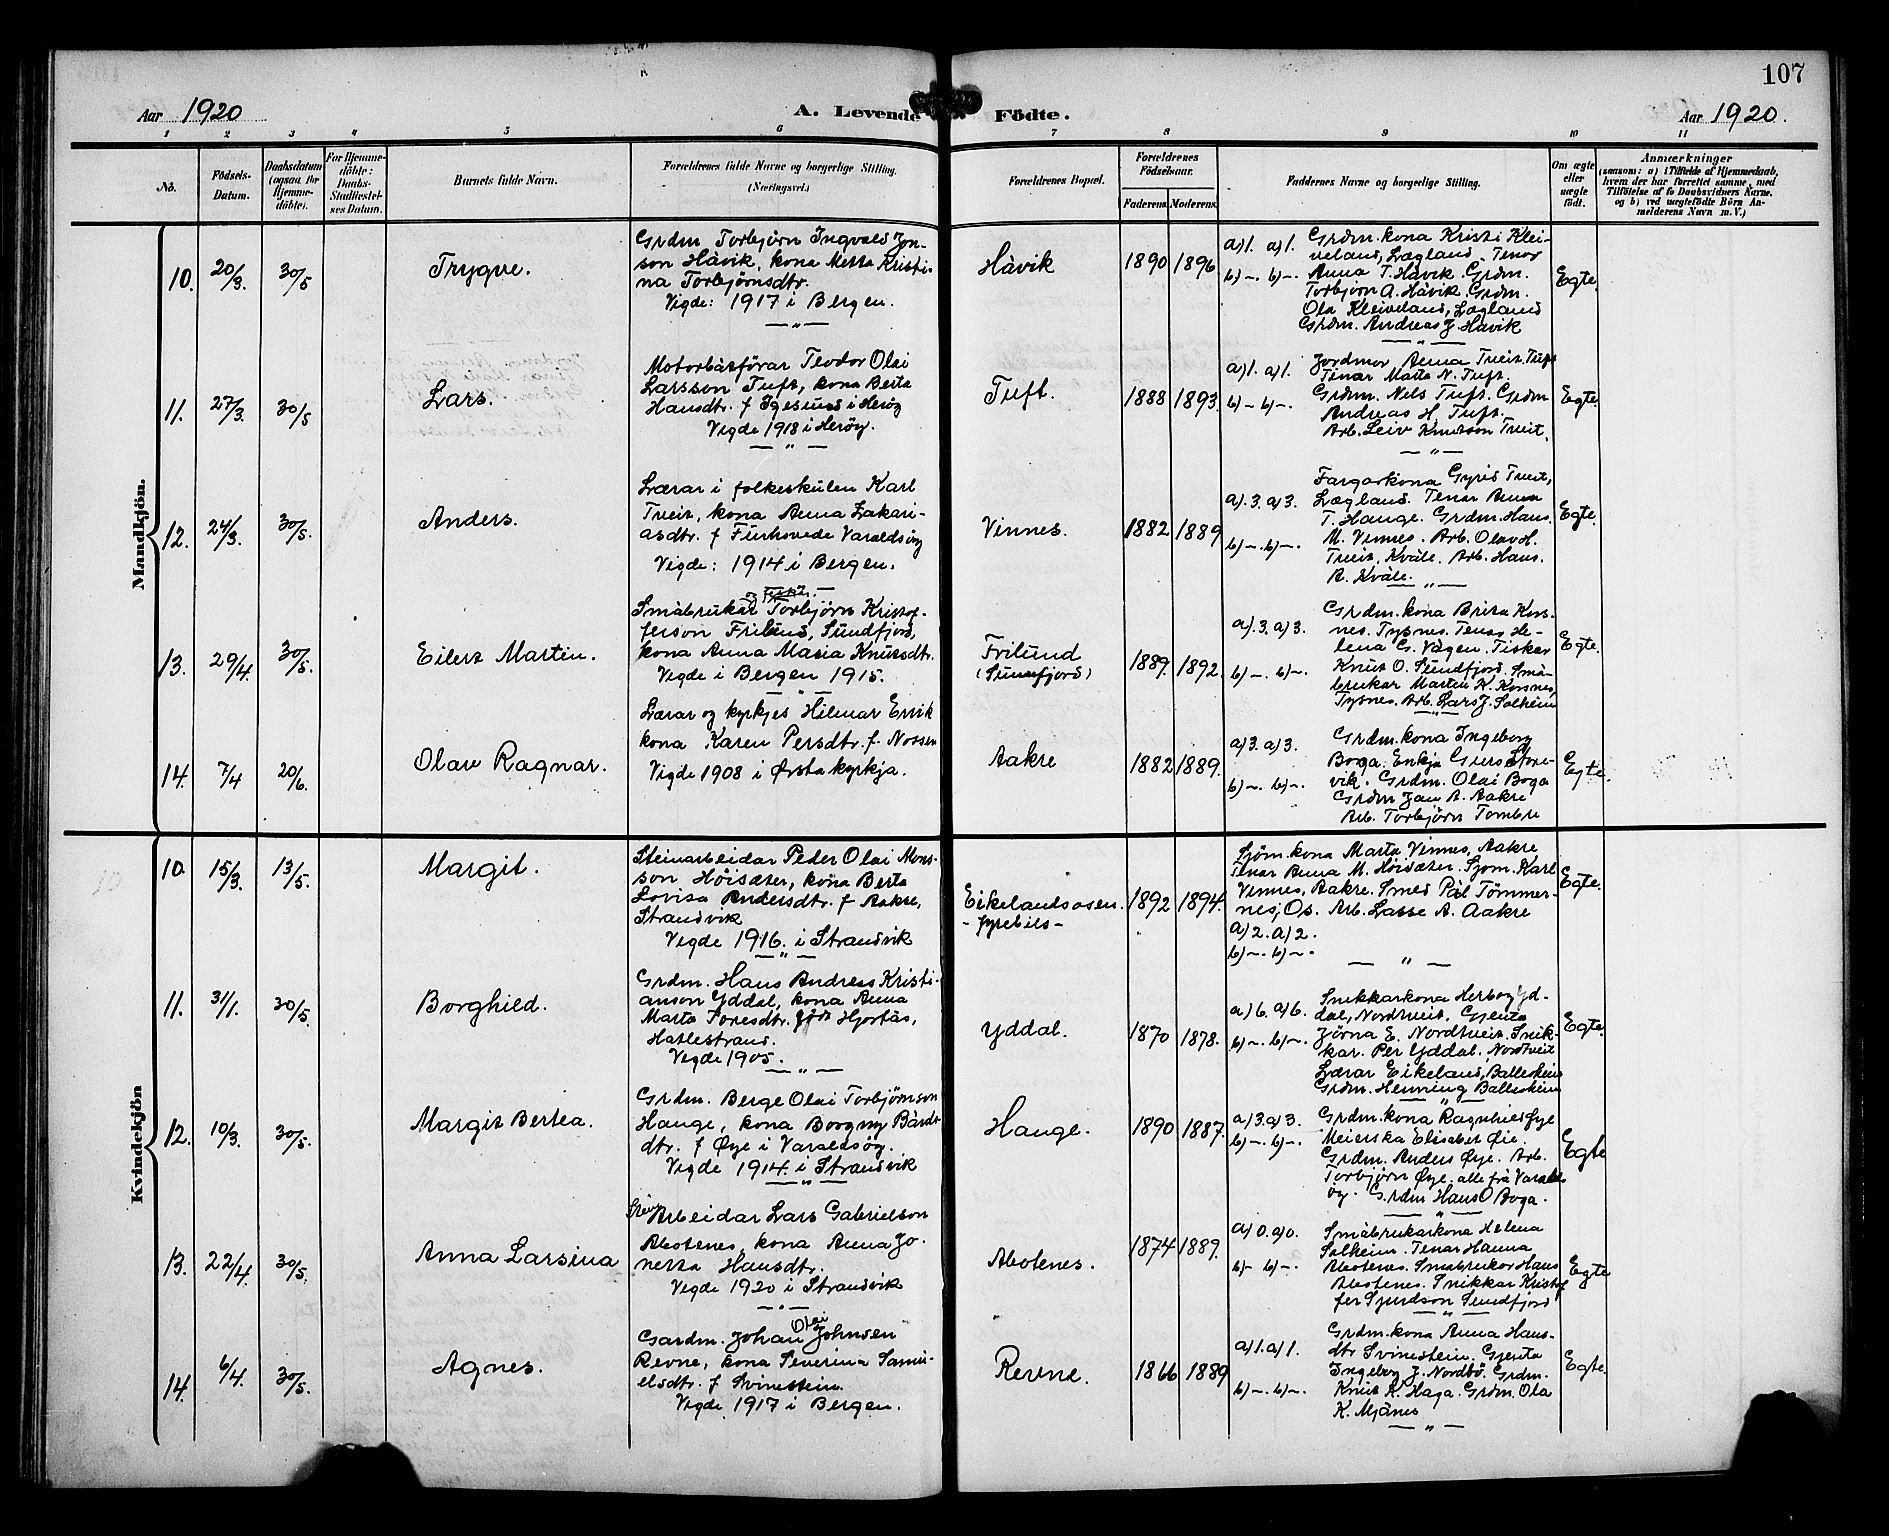 107
Aar 1920
A. Levende Födte.
Aar 1920.
1 2 3 4 5 6 7 8 9 10 11
No.
Födsels-
Datum.
Daabsdatum
(ogsaa for
Hjemme-
döbte).
For Hjemme-
döbte:
Daabs-
Stadfæstel-
ses Datum.
Barnets fulde Navn.
Forældrenes fulde Navne og borgerlige Stilling.
(Næringsvei.)
Forældrenes Bopæl.
Forældrenes
Födselsaar.
Faderens. Moderens.
Faddernes Navne og borgerlige Stilling.
Om ægte
eller
uægte
födt.
Anmærkninger
(saasom: a) i Tilfælde af Hjemmedaab,
hvem der har forrettet samme, med
Tilföielse af to Daabsvidners Navne,
og b) ved uægtefödte Börn An-
melderens Navn m. V.)
Mandkjön.
10. 20/3. 30/5
Trygve.
Grdm Torbjørn Ingvald Jon-
son Håvik, kona Metta Kristi-
na Torbjørnsdtr.
Vigde: 1917 i Bergen.
Håvik
1890 1896
a)1. a)1.
b)–. b)–.
Grdm. kona Kristi Klei-
veland, Lægland. Tenor
Anna T. Håvik. Grdm.
Torbjørn A. Håvik. Grdm.
Ola Kleiveland, Lægland
Grdm. Andreas J. Håvik
Egte.
11. 27/3. 30/5
Lars.
Motorbåtförar Teodor Olai
Larsson Tuft, kona Berta
Hansdtr. f Igesund i Herøy
Vigde 1918 i Herøy.
Tuft.
1888 1893.
a)1. a)1.
b)– b)–.
Jordmor Anna Tveit. Tuft
Tenar Marta N. Tuft.
Grdm. Nels Tuft. Grdm
Andreas H. Tuft.
Arb. Leiv Knutson Tveit.
Egte.
12. 24/3. 30/5.
Anders.
Lærar i folkeskulen Karl
Tveit, kona Anna Zakari-
asdtr. f Furhovede Varaldsøy
Vigde: 1914 i Bergen.
Vinnes.
1882 1889
a).3. a)3.
b)–. b)–.
Fargarkona Gyrid Tveit,
Lægland. Tenar Anna
T. Hauge. Grdm. Hans
M. Vinnes. Arb. Olav H.
Tveit, Kvåle. Arb. Hans.
A. Kvåle.
Egte.
13. 29/4. 30/5.
Eilert Martin.
Småbrukar Torbjørn Kristof-
ferson Frilund, Sundfjord,
kona Anna Maria Knutsdtr.
Vigde i Bergen 1915.
Frilund
(Sundfjord)
1889. 1892.
a).3. a)3.
b)–. b)–.
Grdm. kona Brita Kors-
nes. Tysnes. Tenar He-
lena G. Vågen. Fiskar
Knut O. Sundfjord. Små-
brukar Martin K. Korsnes,
Tysnes. Arb. Lars J. Solheim
Egte.
14. 7/4 20/6.
Olav Ragnar.
Lærar og kyrkjes Hilmar Ervik
kona Karen Persdtr. f. Nossen
Vigde 1908 i Ørsta kyrkja.
Aakre
1882 1889.
a)3. a)3.
b)–. b)–.
Grdm. kona Ingeborg
Boga. Enkja Guro Store-
vik. Grdm. Olai Boga
Grdm Jan A. Aakre
Arb. Torbjørn Tombre
Egte.
Kvindekjön
10. 15/3. 13/5.
Margit.
Steinarbeidar Peder Olai Mons-
son Høisæter, kona Berta
Lovisa Andersdtr. f Aakre,
Strandvik
Vigde 1916. i Strandvik
Eikelandsosen.
- fyrebils -
1892 1894.
Sjöm. kona Marta Vinnes, Aakre
Tenar Anna M. Höisæter. Sjöm. Karl
Vinnes, Aakre. Smed Pål Tömmer-
nes, Os. Arb. Lasse A. Aakre
a)2. a)2.
b)–. b)–.
Egte.
11. 31/1. 30/5.
Borghild.
Grdm. Hans Andreas Kristi-
anson Yddal, kona Anna
Marta Toresdtr. født Hjortås,
Hatlestrand.
Vigde 1905.
Yddal.
1870 1878.
a)6. a)6.
b)–. b)–.
Snikkarkona Herborg Yd-
dal, Nordtveit. Gjenta
Jørna E. Nordtveit. Snik-
kar. Per Yddal. Nordtveit
Lærar Eikeland, Ballesheim
Grdm. Henning Ballesheim
Egte.
12. 10/3. 30/5.
Margit Bertea.
Grdm. Berge Olai Torbjørnson
Hauge, kona Borgny Bårds-
dtr. f Øye i Varaldsøy.
Vigde 1914. i Strandvik
Hauge.
1890 1887.
a)3. a)3.
b)–. b)–.
Grdm. kona Ragnhild Øye
Meierska Elisabet Øie.
Grdm. Anders Øye. Arb.
Torbjørn Øye. alle frå Varalds
øy. Grdm Hans O Boga.
Egte
13. 22/4. 30/5.
Anna Larsina
Arbeidar Lars Gabrielson
Abotenes, kona Anna Jo-
netta Hansdtr.
Vigde 1920 i Strandvik
Abotenes.
1874 1889.
a)0. a)0.
b)– b)–.
Småbrukarkona Helena
Solheim. Tenar Hanna
Abotenes. Småbrukar Hans
Abotenes. Snikkar Kristof
fer Sjurdson Sundfjord
Egte
14. 6/4. 30/5.
Agnes.
Gardm. Johan Olai Johnsen
Revne, kona Severina Samu-
elsdtr. f Svinestein.
Vigde 1917 i Bergen.
Revne.
1866 1889
a)1. a)1.
b)–. b)–.
Grdm. kona Anna Hans-
dtr Svinestein. Gjenta
Ingeborg J. Nordbö. Grdm.
Knut K. Haga. Grdm. Ola
K. Mjånes
Egte.